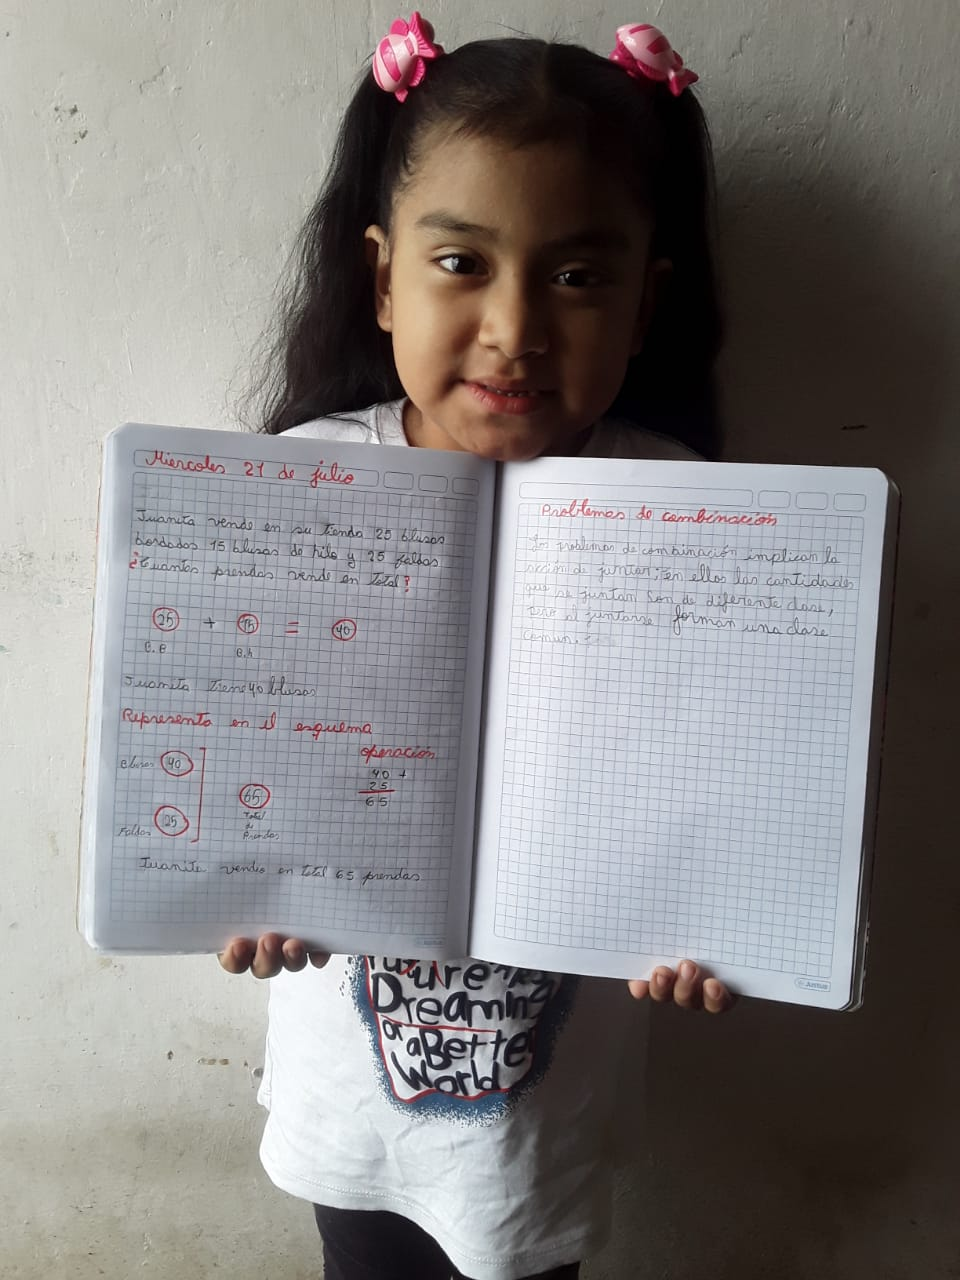 Miercoles 21 de julio
Juanita vende en su tienda 25 blusas
bordadas 15 blusas de hilo y 25 faldas
¿Cuantas prendas vende en total?
25 + 15 = 40
B.B B.h
Juanita tiene 40 blusas
Representa en el esquema
operación
Blusas 40
40 +
25
65
65
Total
de
Prendas
Faldas 25
Juanita vendio en total 65 prendas
Justus
Problemas de combinación
Los problemas de combinación implican la
acción de juntar; en ellos las cantidades
que se juntan son de diferente clase,
pero al juntarse forman una clase
comun.
Justus
Future
Dreaming
of a Better
World